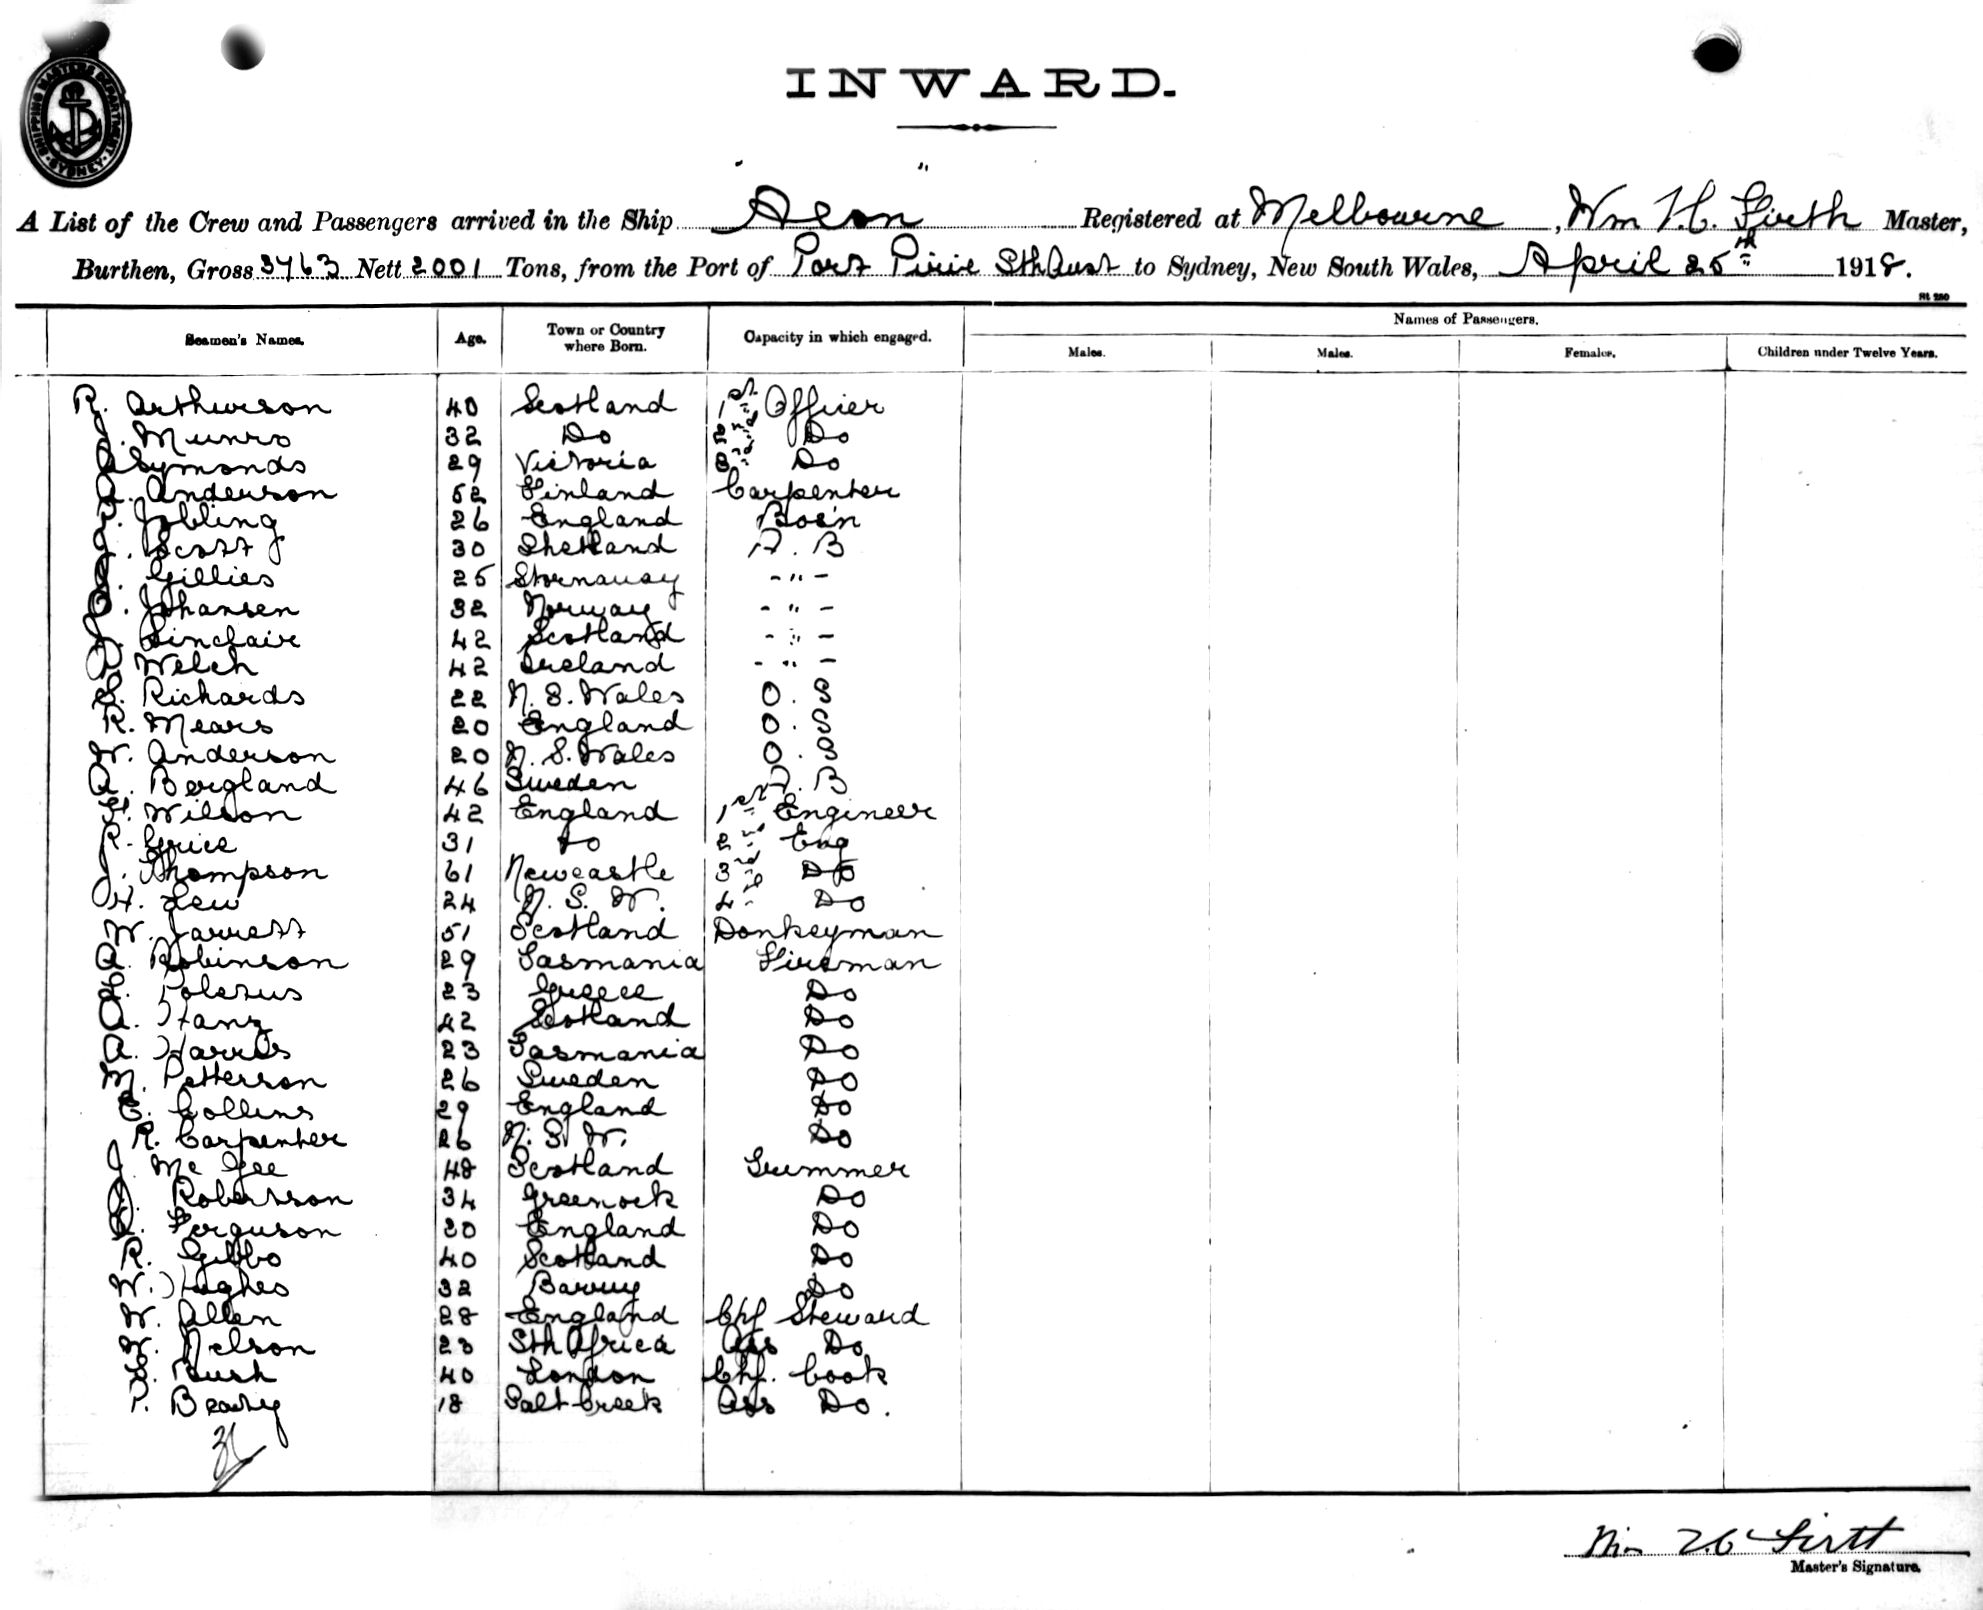 SHIPPING MASTERS DEPARTMENT SYDNEY
INWARD.
A List of the Crew and Passengers arrived in the Ship Aeon Registered at Melbourne, Wm H. Firth Master,
Burthen, Gross 3763 Nett 2001 Tons, from the Port of Port Pirie Sth Aust to Sydney, New South Wales, April 25th 1918.
Seamen's Names. Age. Town or Country where Born. Capacity in which engaged. Names of Passengers.
Males. Males. Females. Children under Twelve Years.
R. Arthurson 40 Scotland 1st Officer
J. Munro 32 Do 2nd Do
Symonds 29 Victoria 3rd Do
A. Anderson 52 Finland Carpenter
Jobling 26 England Bos'n
J. Scott 30 Shetland A. B
Gillies 25 Stornauay -"-
O. Johansen 32 Norway -"-
J. Sinclair 42 Scotland -"-
Welch 42 Ireland -"-
S. Richards 22 N. S. Wales O. S
R. Mears 20 England O. S
W. Anderson 20 N. S. Wales O. S
A. Bergland 46 Sweden A. B
Wilson 42 England 1st Engineer
R. Grice 31 Do 2nd Eng
J. Thompson 61 Newcastle 3rd Do
H. Lew 24 N. S. W. 4th Do
W. Jarrett 51 Scotland Donkeyman
A. Robinson 29 Tasmania Fireman
Poletus 23 Greece Do
A. 42 Scotland Do
A. Harris 23 Tasmania Do
M. Petterson 26 Sweden Do
E. Collins 29 England Do
R. Carpenter 26 N. S. W. Do
J. Mc Gee 48 Scotland Trimmer
J. Robertson 34 Greenock Do
Ferguson 30 England Do
R. Gibbo 40 Scotland Do
W. Hughes 32 Barry Do
W. Allen 28 England Chf Steward
W. Nelson 23 Sth Africa Ass Do
Bush 40 London Chf. Cook
P. Beasley 18 Salt Creek Ass Do.
Wm H Firth
Master's Signature